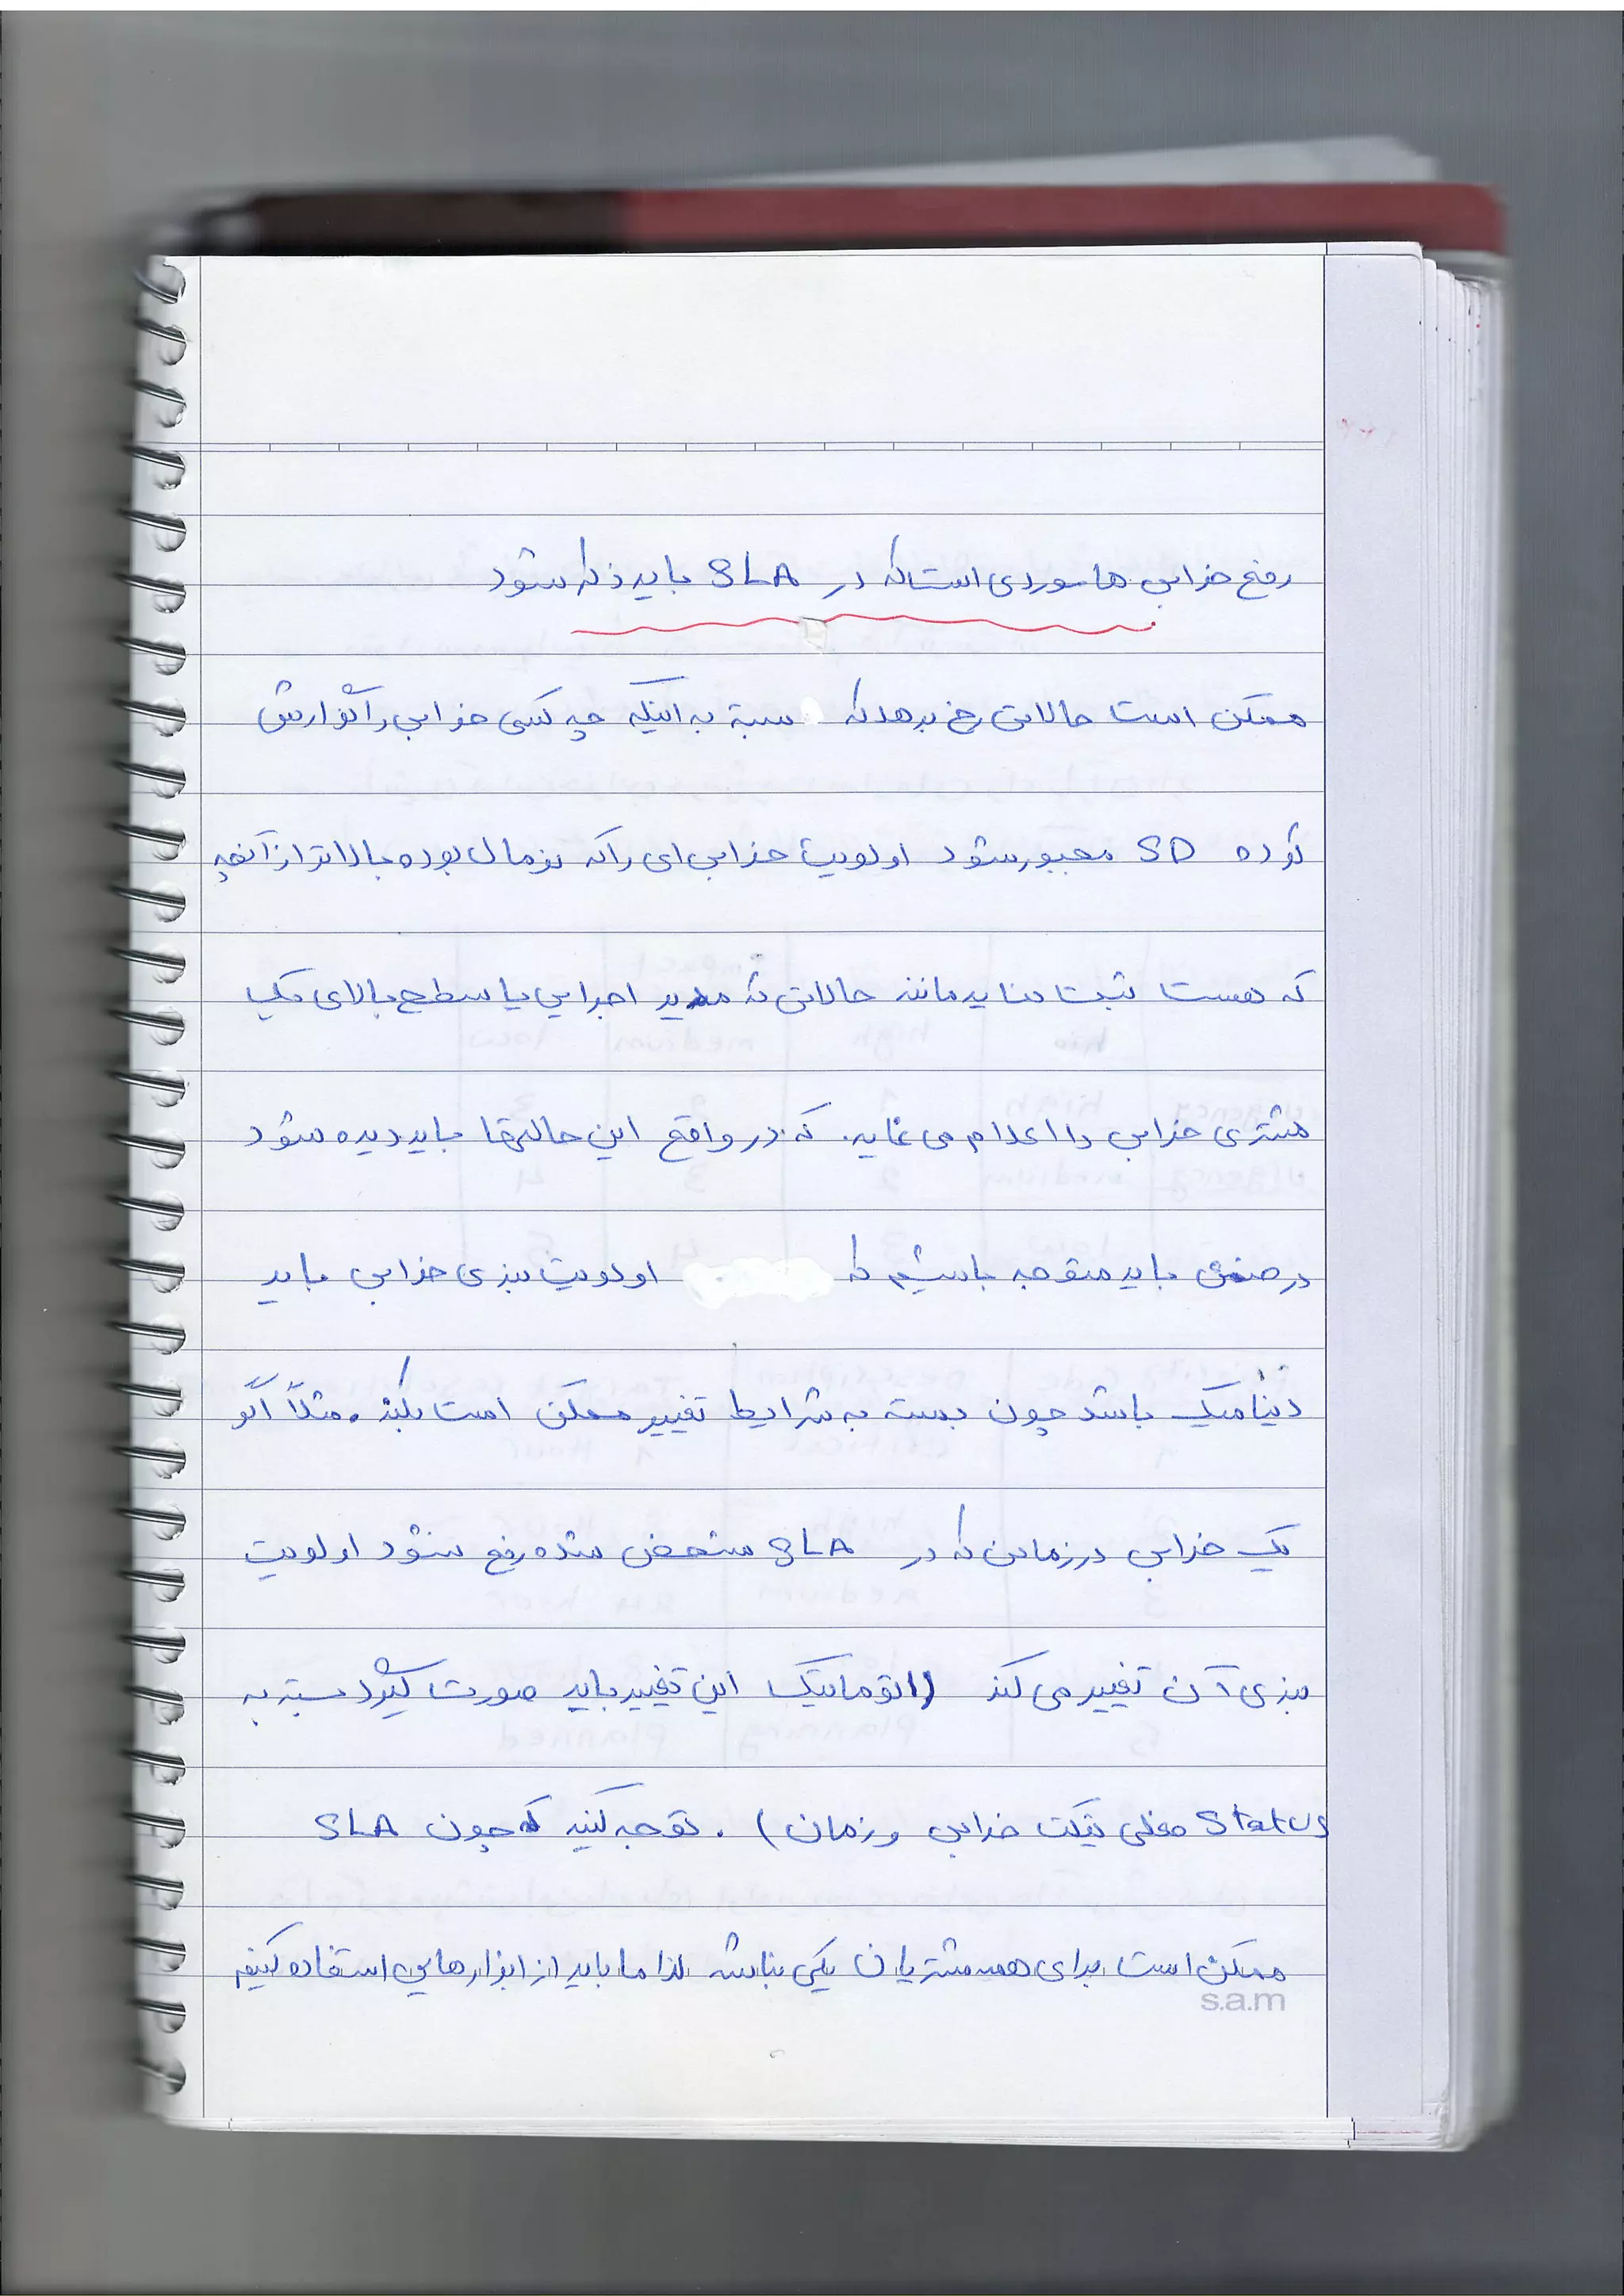 رفع خرابی ها موردی است که در SLA باید ذکر شود
ممکن است حالاتی رخ بدهد که بسته به اینکه چه کسی خرابی را گزارش
کرده SD مجبور شود اولویت خرابی ای را که نرمال بوده بالاتر از آنچه
که هست ثبت نماید مانند حالاتی که مدیر اجرایی یا سطح بالای یک
مشتری خرابی را اعلام می نماید. که در واقع این حالتها باید دیده شود
در ضمن باید متوجه باشیم که اولویت بندی خرابی باید
دینامیک باشد چون بسته به شرایط تغییر ممکن است بکند. مثلاً اگر
یک خرابی در زمانی که در SLA مشخص شده رفع نشود اولویت
بندی آن تغییر می کند (اتوماتیک این تغییر باید صورت گیرد بسته به
Status فعلی تیکت خرابی و زمان). توجه کنید که چون SLA
ممکن است برای همه مشتریان یکی نباشد لذا ما باید از ابزارهایی استفاده کنیم
s.a.m